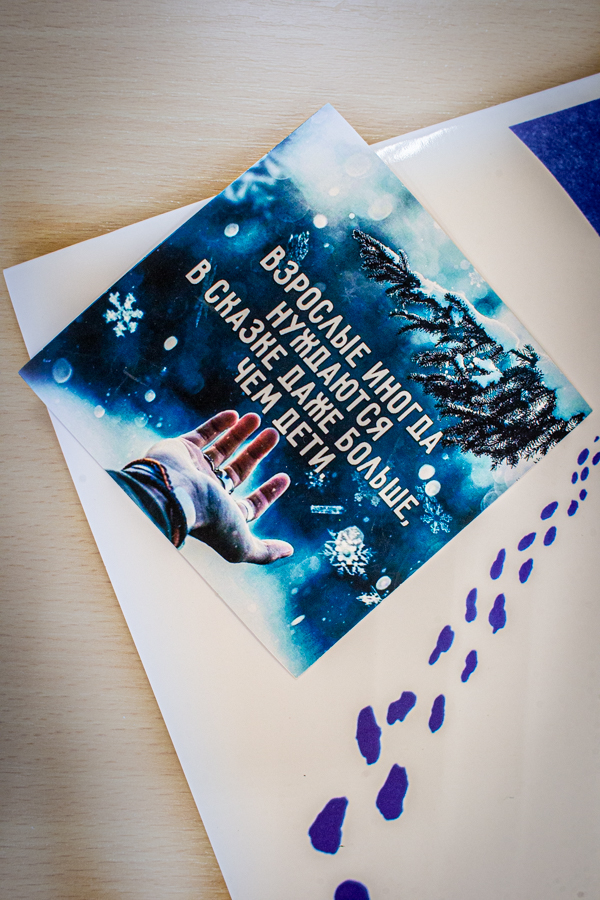 ВЗРОСЛЫЕ ИНОГДА
НУЖДАЮТСЯ
В СКАЗКЕ ДАЖЕ БОЛЬШЕ,
ЧЕМ ДЕТИ